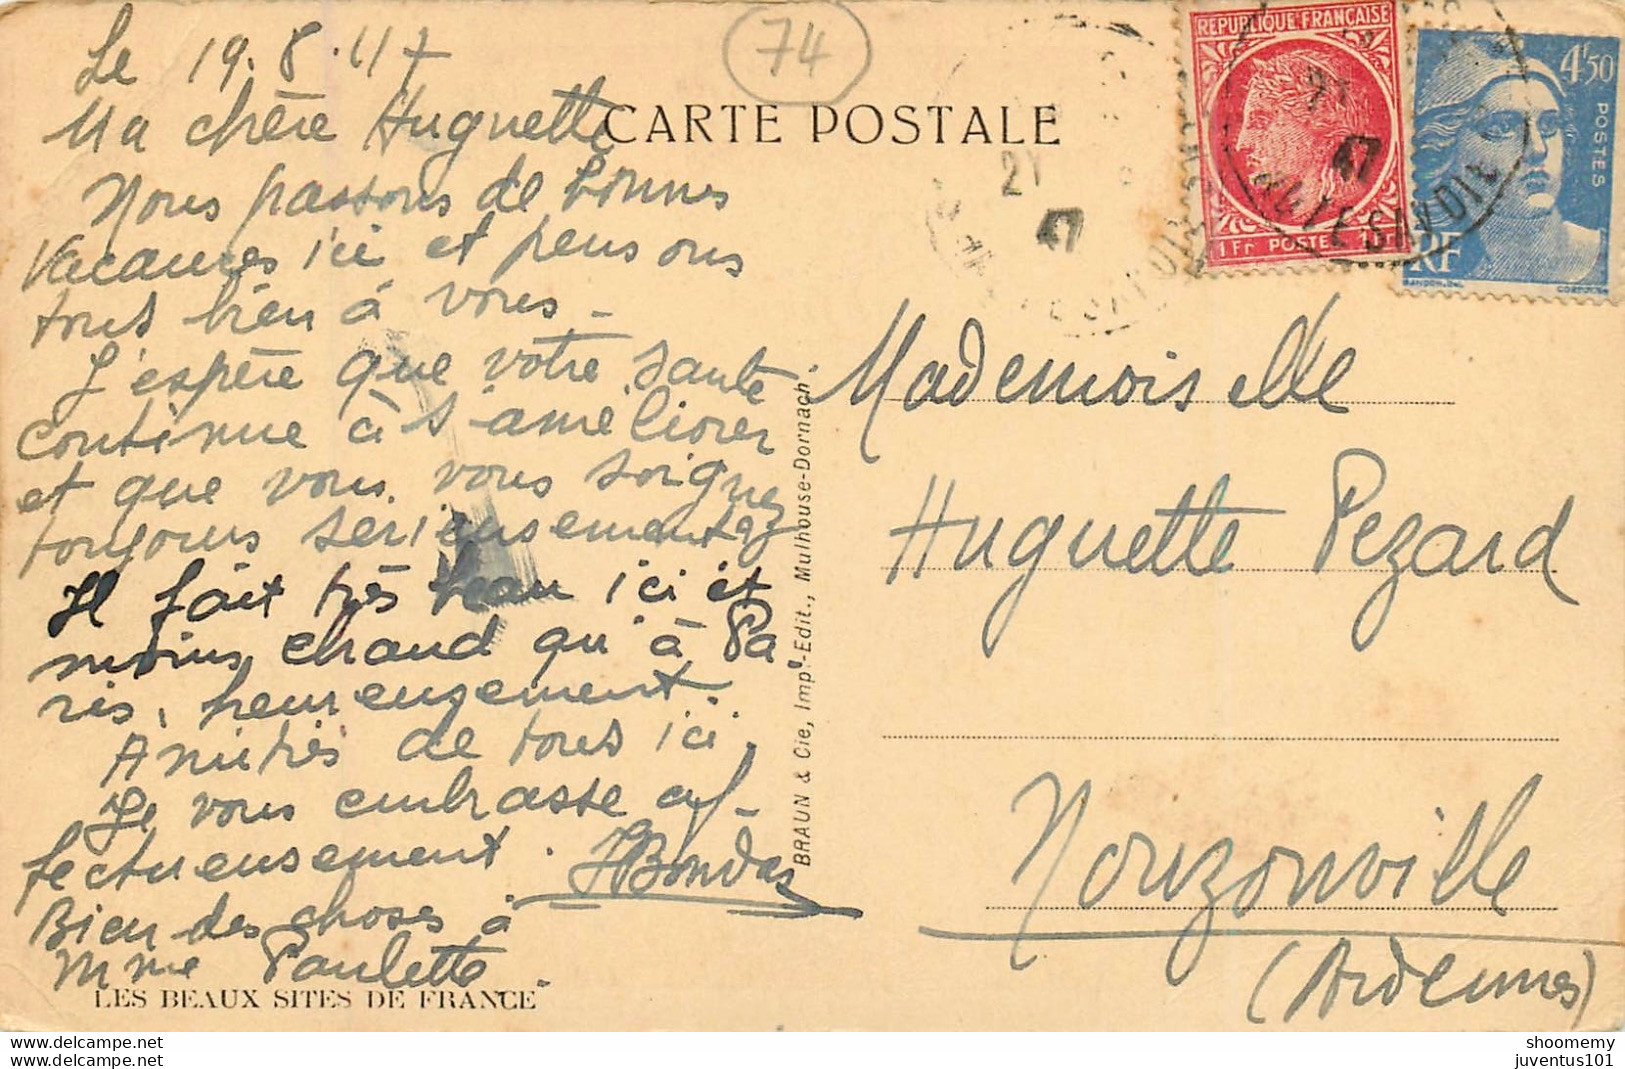 Le 19.8.47
Ma chère Huguette
Nous passons de bonnes
vacances ici et pensons
tous bien à vous.
J'espère que votre santé
continue à s'améliorer
et que vous vous soignez
toujours sérieusement
Il fait très beau ici et
moins chaud qu'à Pa-
ris, heureusement.
Amitiés de tous ici.
Je vous embrasse af-
fectueusement.
Bien des choses à
Mme Paulette.
LES BEAUX SITES DE FRANCE
74
CARTE POSTALE
BRAUN & Cie, Imp.-Edit., Mulhouse-Dornach.
21
47
REPUBLIQUE FRANÇAISE
1 Fr POSTES 1 Fr
47
HAUTE SAVOIE
4F50
POSTES
RF
GANDON DEL.
Mademoiselle
Huguette Pezard
Nouzonville
(Ardennes)
www.delcampe.net
www.delcampe.net
shoomemy
juventus101